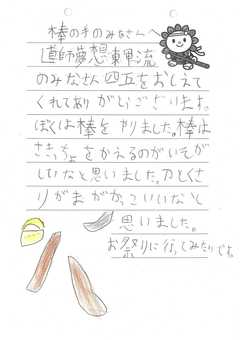 棒の手のみなさんへ
直師夢想東軍流
のみなさん四五をおしえて
くれてありがとうございます。
ぼくは棒をやりました。棒は
さきっちょをかえるのがいそが
しいなと思いました。刀とくさ
りがまがかっこいいなと
思いました。
お祭りに行ってみたいです。